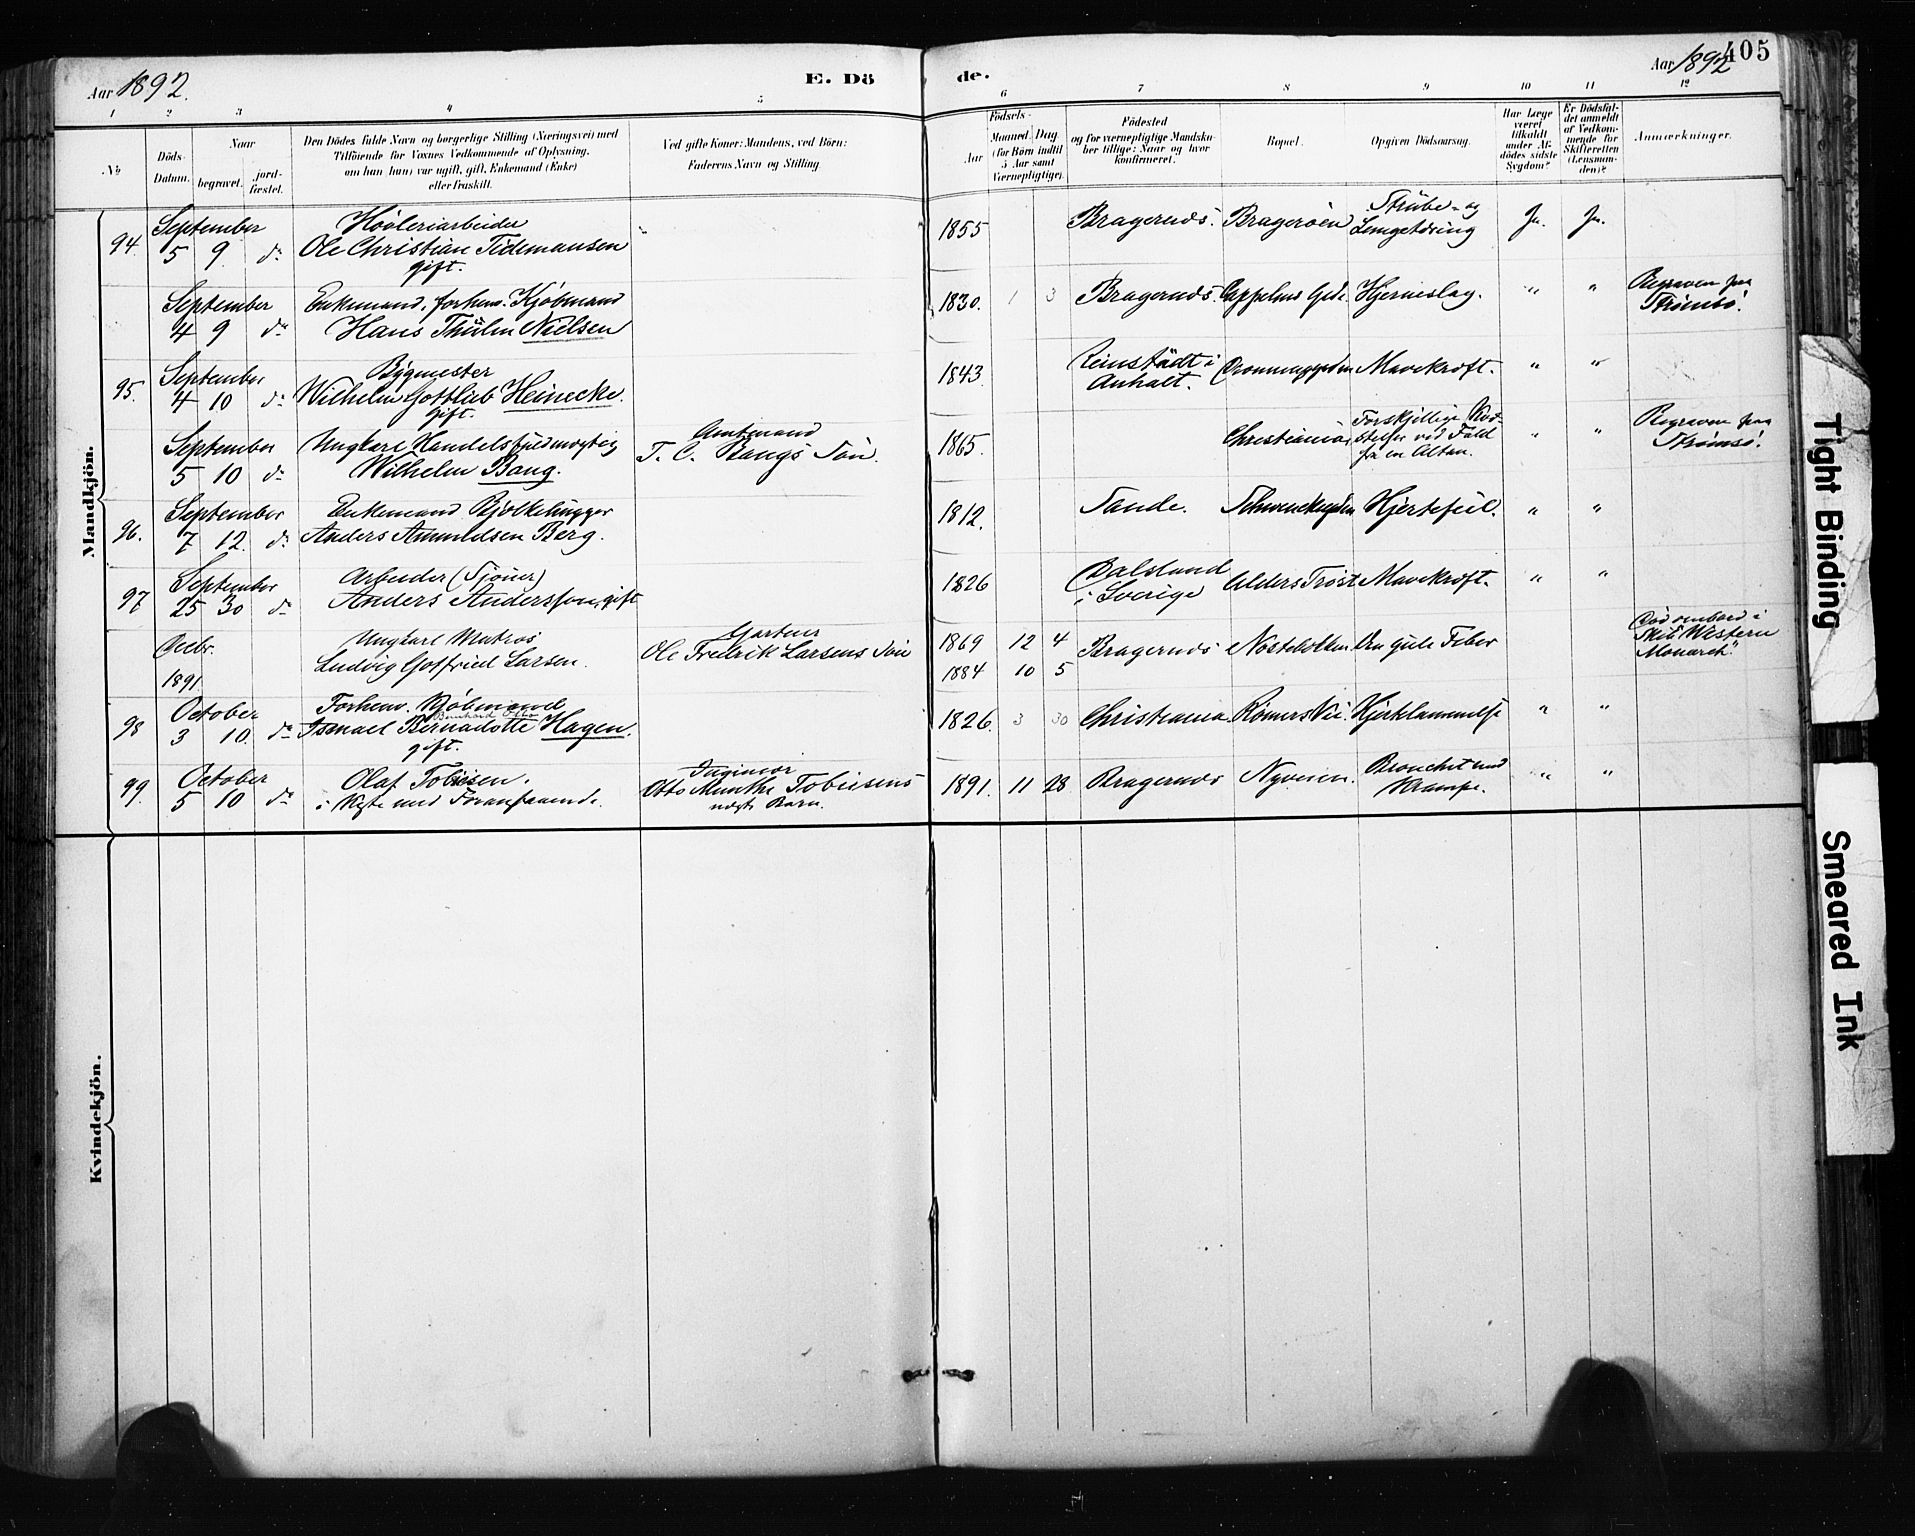 Aar 1892.
E. Dö
de.
Aar 1892
405
1 2 3 4 5
6 7 8 9 10 11 12
No
Döds-
Datum.
Naar
begravet.
jord-
fæstet.
Den Dödes fulde Navn og borgerlige Stilling (Næringsvei) med
Tilföiende for Voxnes Vedkommende af Oplysning,
om han (hun) var ugift, gift, Enkemand (Enke)
eller fraskilt.
Ved gifte Koner: Mandens, ved Börn:
Faderens Navn og Stilling.
Födsels-
Aar
Maaned Dag
(for Börn indtil
5 Aar samt
Værnepligtige).
Födested
og for værnepligtige Mandsku-
ber tillige: Naar og hvor
konfirmeret.
Bopæl.
Opgiven Dödsaarsag.
Har Læge
været
tilkaldt
under Af-
dödes sidste
Sygdom?
Er Dödsfal-
det anmeldt
af Vedkom-
mende for
Skifteretten
(Lensman-
den)?
Anmærkninger.
Mandkjön.
94.
September
5 9 do
Høvleriarbeider
Ole Christian Tidemansen
gift.
"
1855
Bragernæs.
Bragerøen
Strube- og
Ja.
Ja.
September
4 9 do
Enkemand, forhenv. Kjøbmand
Hans Thulin Nielsen
1830. 1 3
Bragernæs.
Cappelens Gde.
Hjerneslag.
" "
Begraven paa
Strømsø.
95.
September
4 10 do
Bygmester
Wilhelm Gottlieb Heinecke.
gift.
1843
i
Anhalt.
Mavekræft.
" "
September
5 10 do
Ungkarl Handelsfuldmægtig
Wilhelm Bang.
Amtmand
T. C. Bangs Søn.
1865.
Christiania,
Forskjellige Kvæ-
stelser ved Fald
fra en Altan.
" "
Begraven paa
Strømsø.
96.
September
7 12. do
Enkemand Bjelkehugger
Anders Amundsen Berg.
1812.
Sande.
Schwenckegaden
Hjertefeil.
" "
97
September
25 30 do
Arbeider (Sjouer)
Anders Andersson, gift
1826
Dalsland
i Sverige
Alders Trøst
Mavekræft.
" "
Decbr.
1891.
Ungkarl Matros
Ludvig Gotfried Larsen.
Gartner
Ole Fredrik Larsens Søn
1869 12 4
1884 10 5
Bragernæs
Den gule Feber
Død ombord i
Skib "Western
Monarch".
98
October
3 10. do
Forhenv. Kjøbmand
Bernhard
Ismael Bernadotte Hagen.
gift.
1826. 3 30
Christiania.
Rømers Vei.
Hjertelammelse
" "
99.
October
5 10 do
Olaf Tobiesen.
i Ægte med Foranstaaende.
Ingeniør
Otto Munthe Tobiesens
uægte Barn.
1891. 11 28
Bragernæs
Nyveien.
Bronchit med
Krampe.
" "
Kvindekjön.
Tight Binding
Smeared Ink